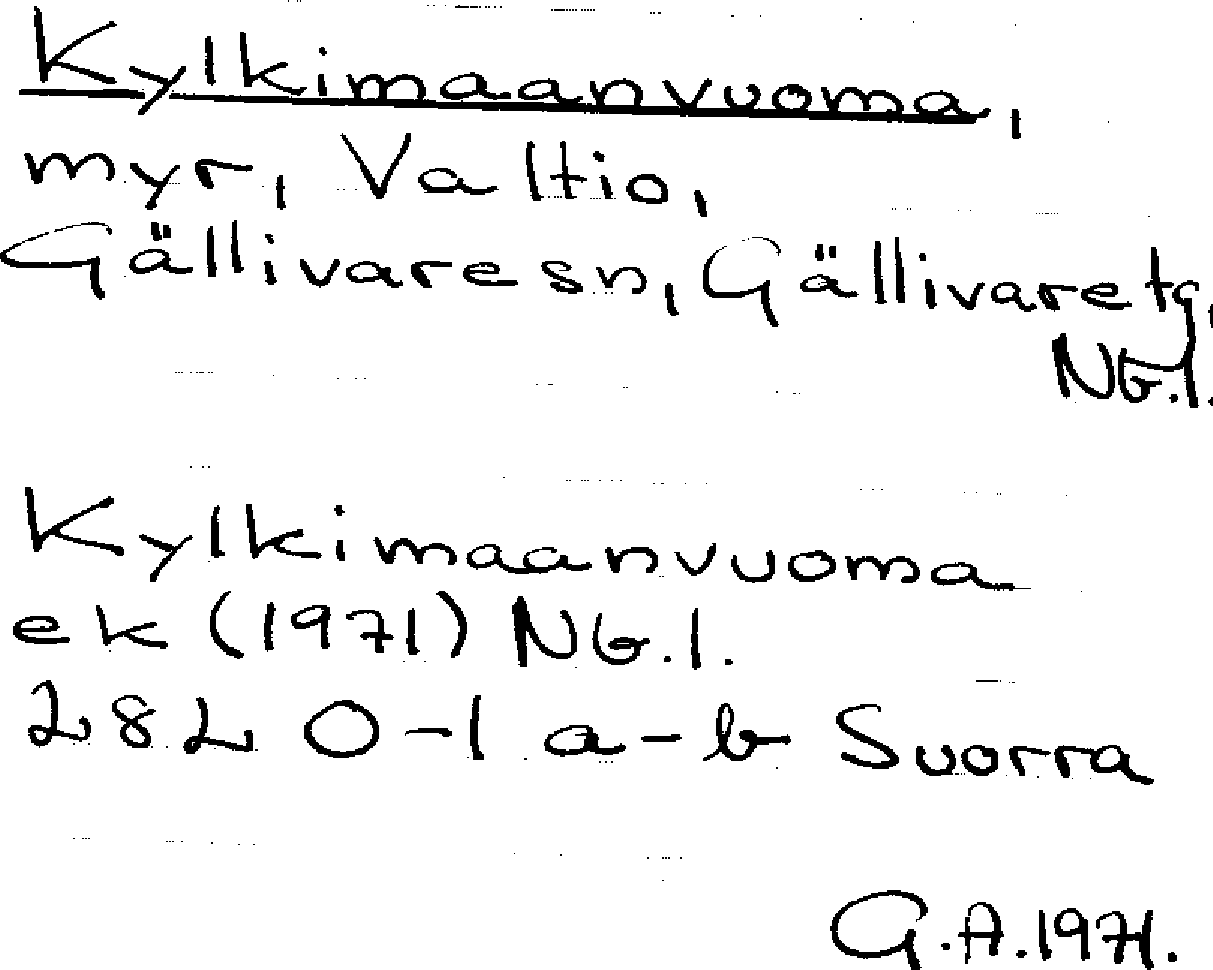 Kylkimaanvuoma,
myr, Valtio,
Gällivare sn, Gällivare tg,
Nb.l.
Kylkimaanvuoma
ek (1971) Nb.l.
282 0-1 a-b Suorra
G.A. 1971.